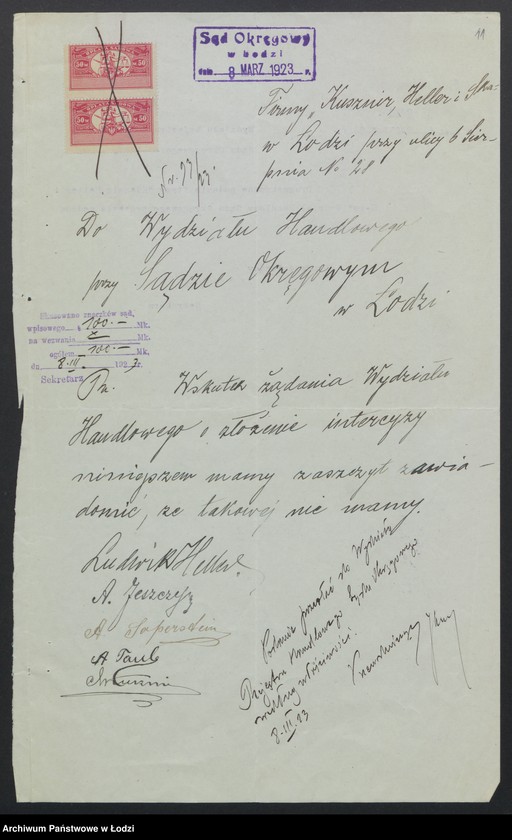 11
Sąd Okręgowy
w Łodzi
dnia 8 MARZ. 1923 r.
50 50
50 50
Firmy „Kusznir, Heller i Ska"
w Łodzi przy ulicy 6 Sier-
pnia № 28
Do Wydziału Handlowego
przy Sądzie Okręgowym
w Łodzi
Skasowano znaczków sąd.
wpisowego 100.— Mk.
na wezwanie Mk.
ogółem 100.— Mk.
dn. 8-III 1923 r.
Sekretarz
Wskutek żądania Wydziału
Handlowego o złożenie intercyzy
niniejszem mamy zaszczyt zawia-
domić, że takowej nie mamy.
Ludwik Heller.
A. Saperstein
A Taub
Podanie przesłać do Wydziału
Rejestru Handlowego Sądu Okręgowego
według właściwości.
8.III.23
Archiwum Państwowe w Łodzi